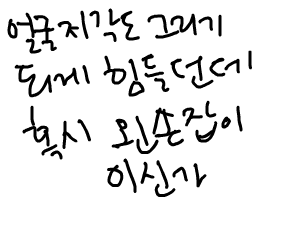 얼굴지각도 그리기
되게 힘들던데
혹시 왼손잡이
이신가